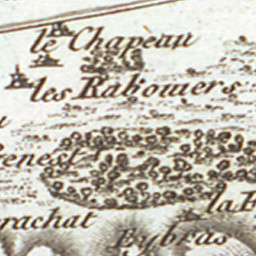 le Chapeau
les Rabouiers
enest
la
rachat
Eybras